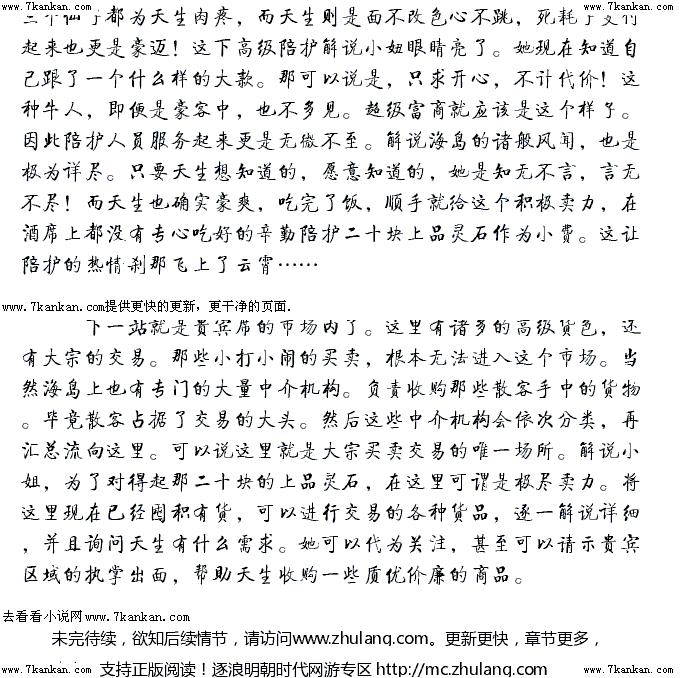 www.7kankan.com www.7kankan.com
三个仙子都为天生肉疼，而天生则是面不改色心不跳，死耗子支付
起来也更是豪迈！这下高级陪护解说小妞眼睛亮了。她现在知道自
己跟了一个什么样的大款。那可以说是，只求开心，不计代价！这
种牛人，即便是豪客中，也不多见。超级富商就应该是这个样子。
因此陪护人员服务起来更是无微不至。解说海岛的诸般风闻，也是
极为详尽。只要天生想知道的，愿意知道的，她是知无不言，言无
不尽！而天生也确实豪爽，吃完了饭，顺手就给这个积极卖力，在
酒席上都没有专心吃好的辛勤陪护二十块上品灵石作为小费。这让
陪护的热情刹那飞上了云霄……
www.7kankan.com提供更快的更新，更干净的页面.
下一站就是贵宾席的市场内了。这里有诸多的高级货色，还
有大宗的交易。那些小打小闹的买卖，根本无法进入这个市场。当
然海岛上也有专门的大量中介机构。负责收购那些散客手中的货物
。毕竟散客占据了交易的大头。然后这些中介机构会依次分类，再
汇总流向这里。可以说这里就是大宗买卖交易的唯一场所。解说小
姐，为了对得起那二十块的上品灵石，在这里可谓是极尽卖力。将
这里现在已经囤积有货，可以进行交易的各种货品，逐一解说详细
，并且询问天生有什么需求。她可以代为关注，甚至可以请示贵宾
区域的执掌出面，帮助天生收购一些质优价廉的商品。
去看看小说网www.7kankan.com
未完待续，欲知后续情节，请访问www.zhulang.com。更新更快，章节更多，
www.7kankan.com 支持正版阅读！逐浪明朝时代网游专区 http://mc.zhulang.com www.7kankan.com